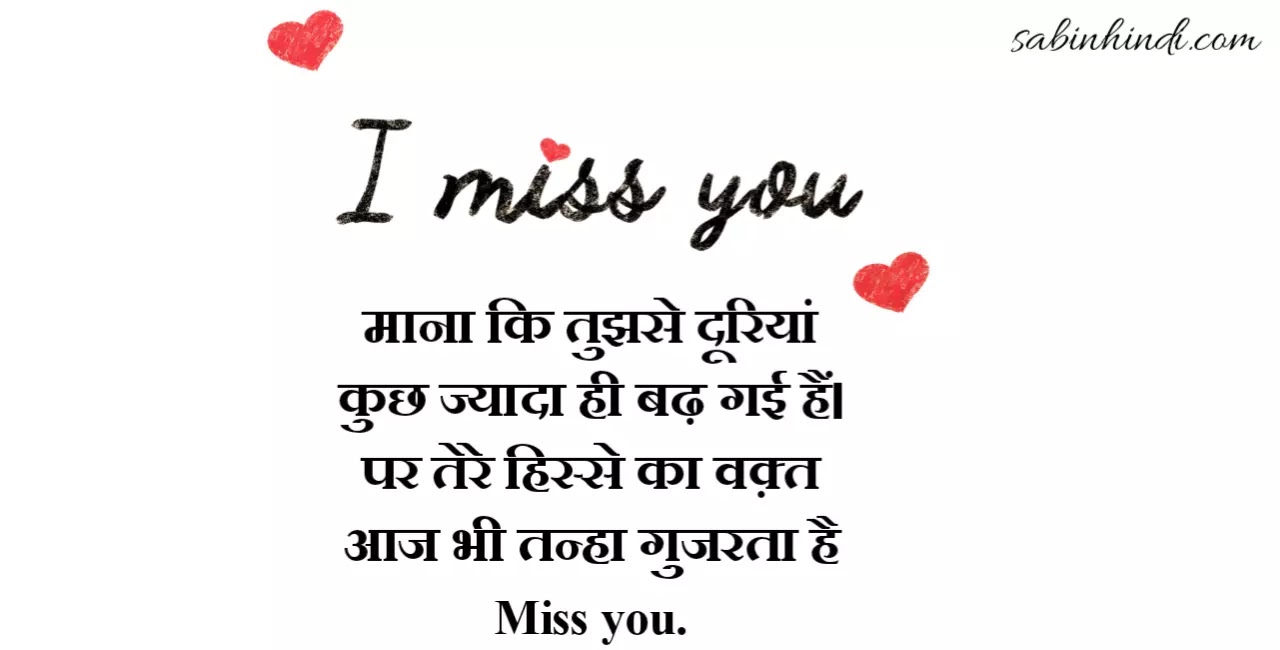 sabinhindi.com
I miss you
माना कि तुझसे दूरियां
कुछ ज्यादा ही बढ़ गई हैं।
पर तेरे हिस्से का वक़्त
आज भी तन्हा गुजरता है
Miss you.